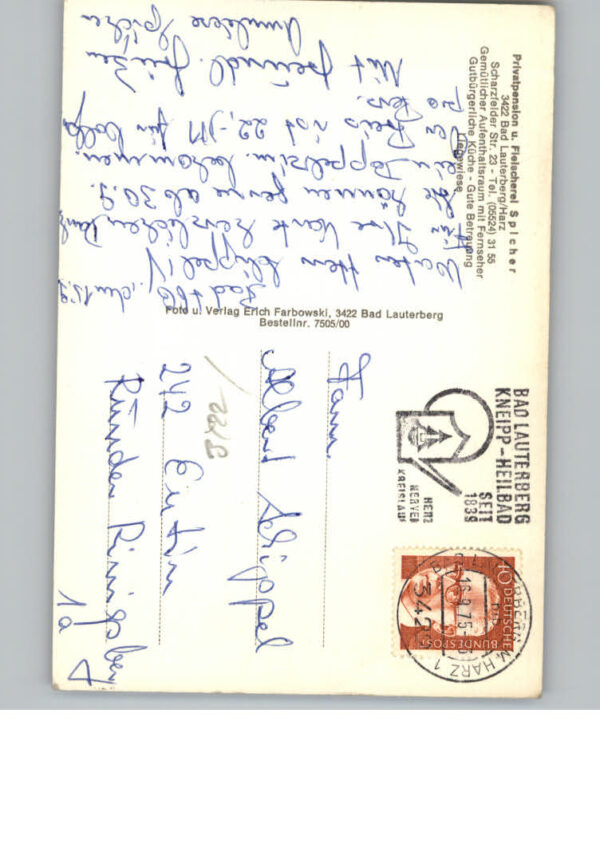 Privatpension u. Fleischerei Spicher
3422 Bad Lauterberg/Harz
Scharzfelder Str. 23 - Tel. (05524) 31 55
Gemütlicher Aufenthaltsraum mit Fernseher
Gutbürgerliche Küche - Gute Betreuung
Liegewiese
Werter Herr Schippel!
Für Ihre Karte herzlichen Dank
Sie können gerne ab 30.9.
ein Doppelzim. bekommen.
Der Preis ist 22,- DM für
pro Pers.
Mit freundl. Grüßen
Annliese Spicher
Foto u. Verlag Erich Farbowski, 3422 Bad Lauterberg
Bestellnr. 7505/00
BAD LAUTERBERG
KNEIPP-HEILBAD
SEIT
1839
HERZ
NERVEN
KREISLAUF
40 DEUTSCHE
BUNDESPOST
16.9.75
342
HARZ 1
Fam.
Albert Schippel
242 Eutin
1a